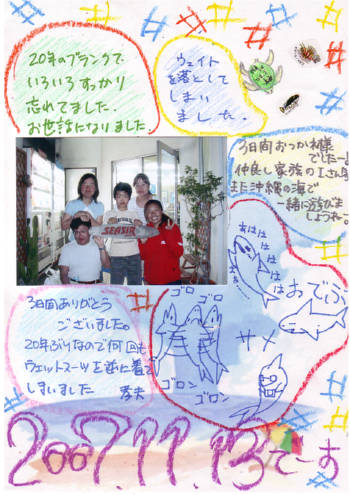 20年のブランクで
いろいろすっかり
忘れてました.
お世話になりました.
ウェイト
を落として
しまい
ました.
3日間おつかれ様
でしたー!
仲良し家族のIさん
また沖縄の海で
一緒に遊びま
しょうねー。
SEASIR
あはは
はははは
おでぶ
サメ
ゴロ
ゴロ
ゴロン
ゴロン
3日間ありがとう
ございました。
20年ぶりなので何回も
ウェットスーツを逆に着て
しまいました
孝夫
2007.11.13でーす